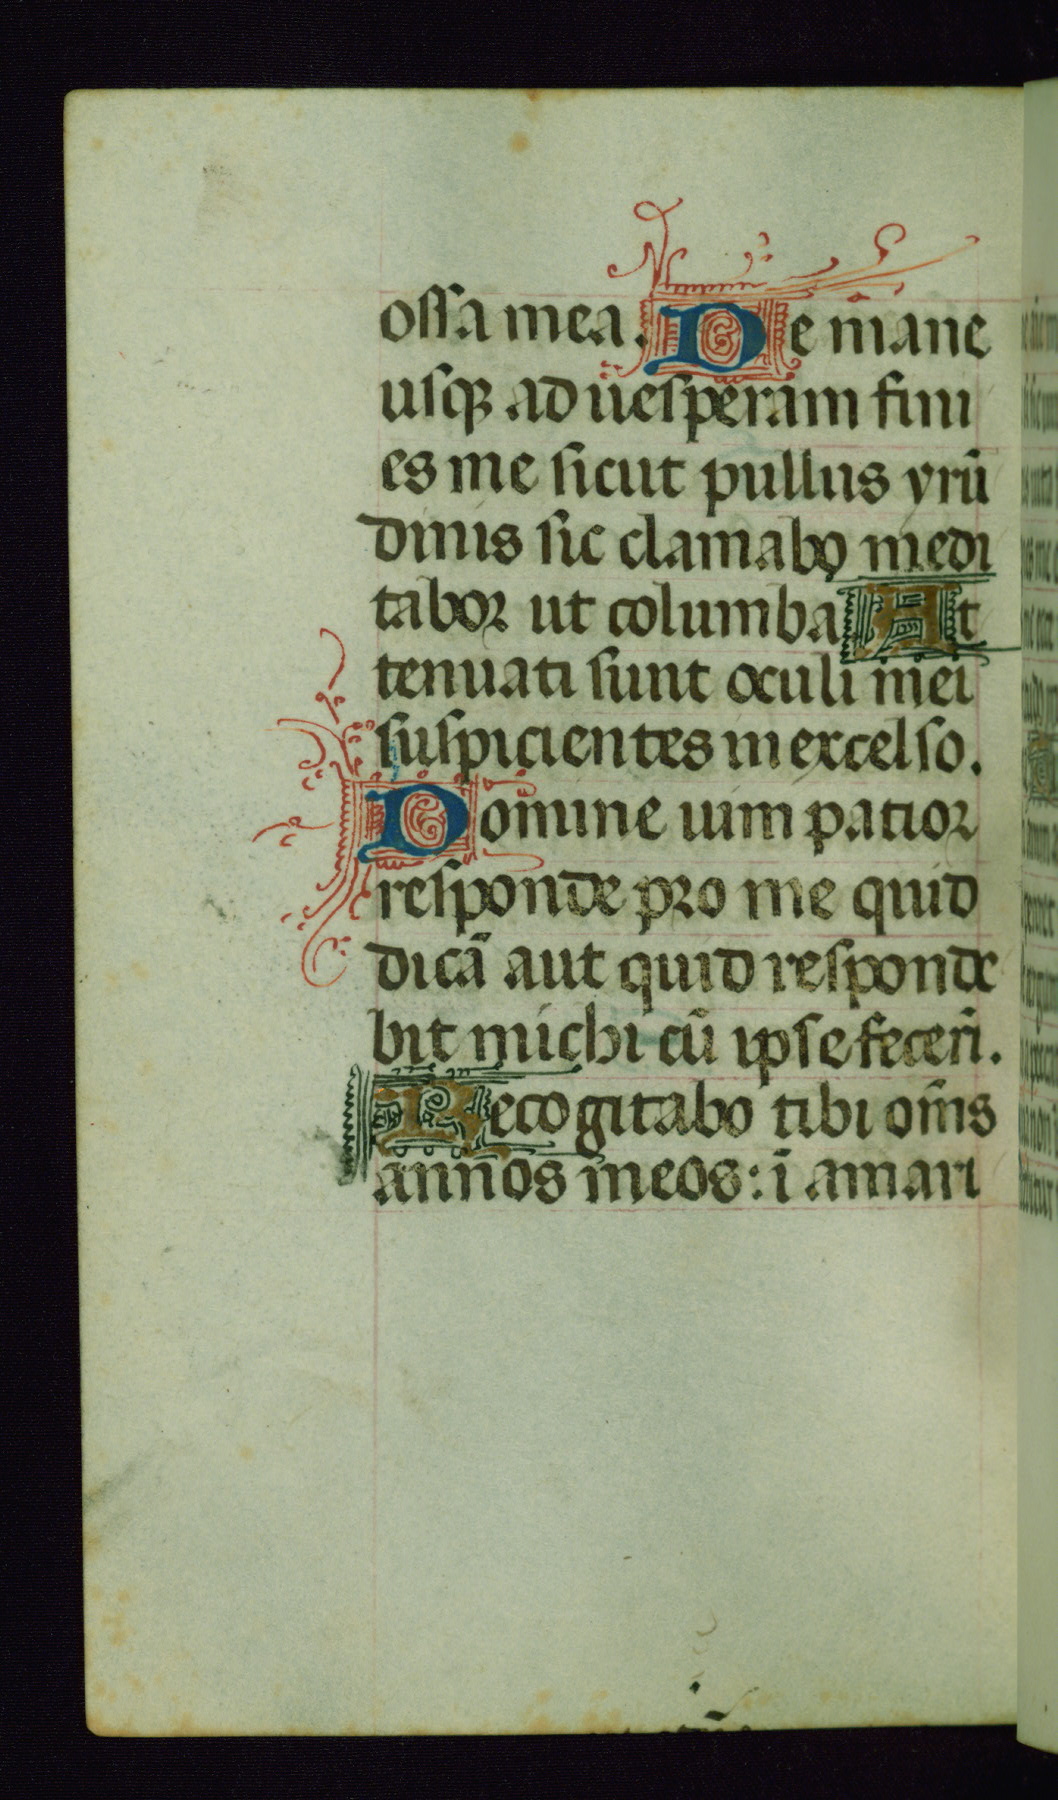 ossa mea. De mane
usqꝫ ad uesperam fini
es me sicut pullus yrũ
dinis sic clamabo medi
tabor ut columba At
tenuati sunt oculi mei
suspicientes in excelso.
Domine uim patior
responde pro me quid
dicã aut quid responde
bit michi cũ ipse fecerĩ.
Recogitabo tibi om̃s
annos meos: ĩ amari